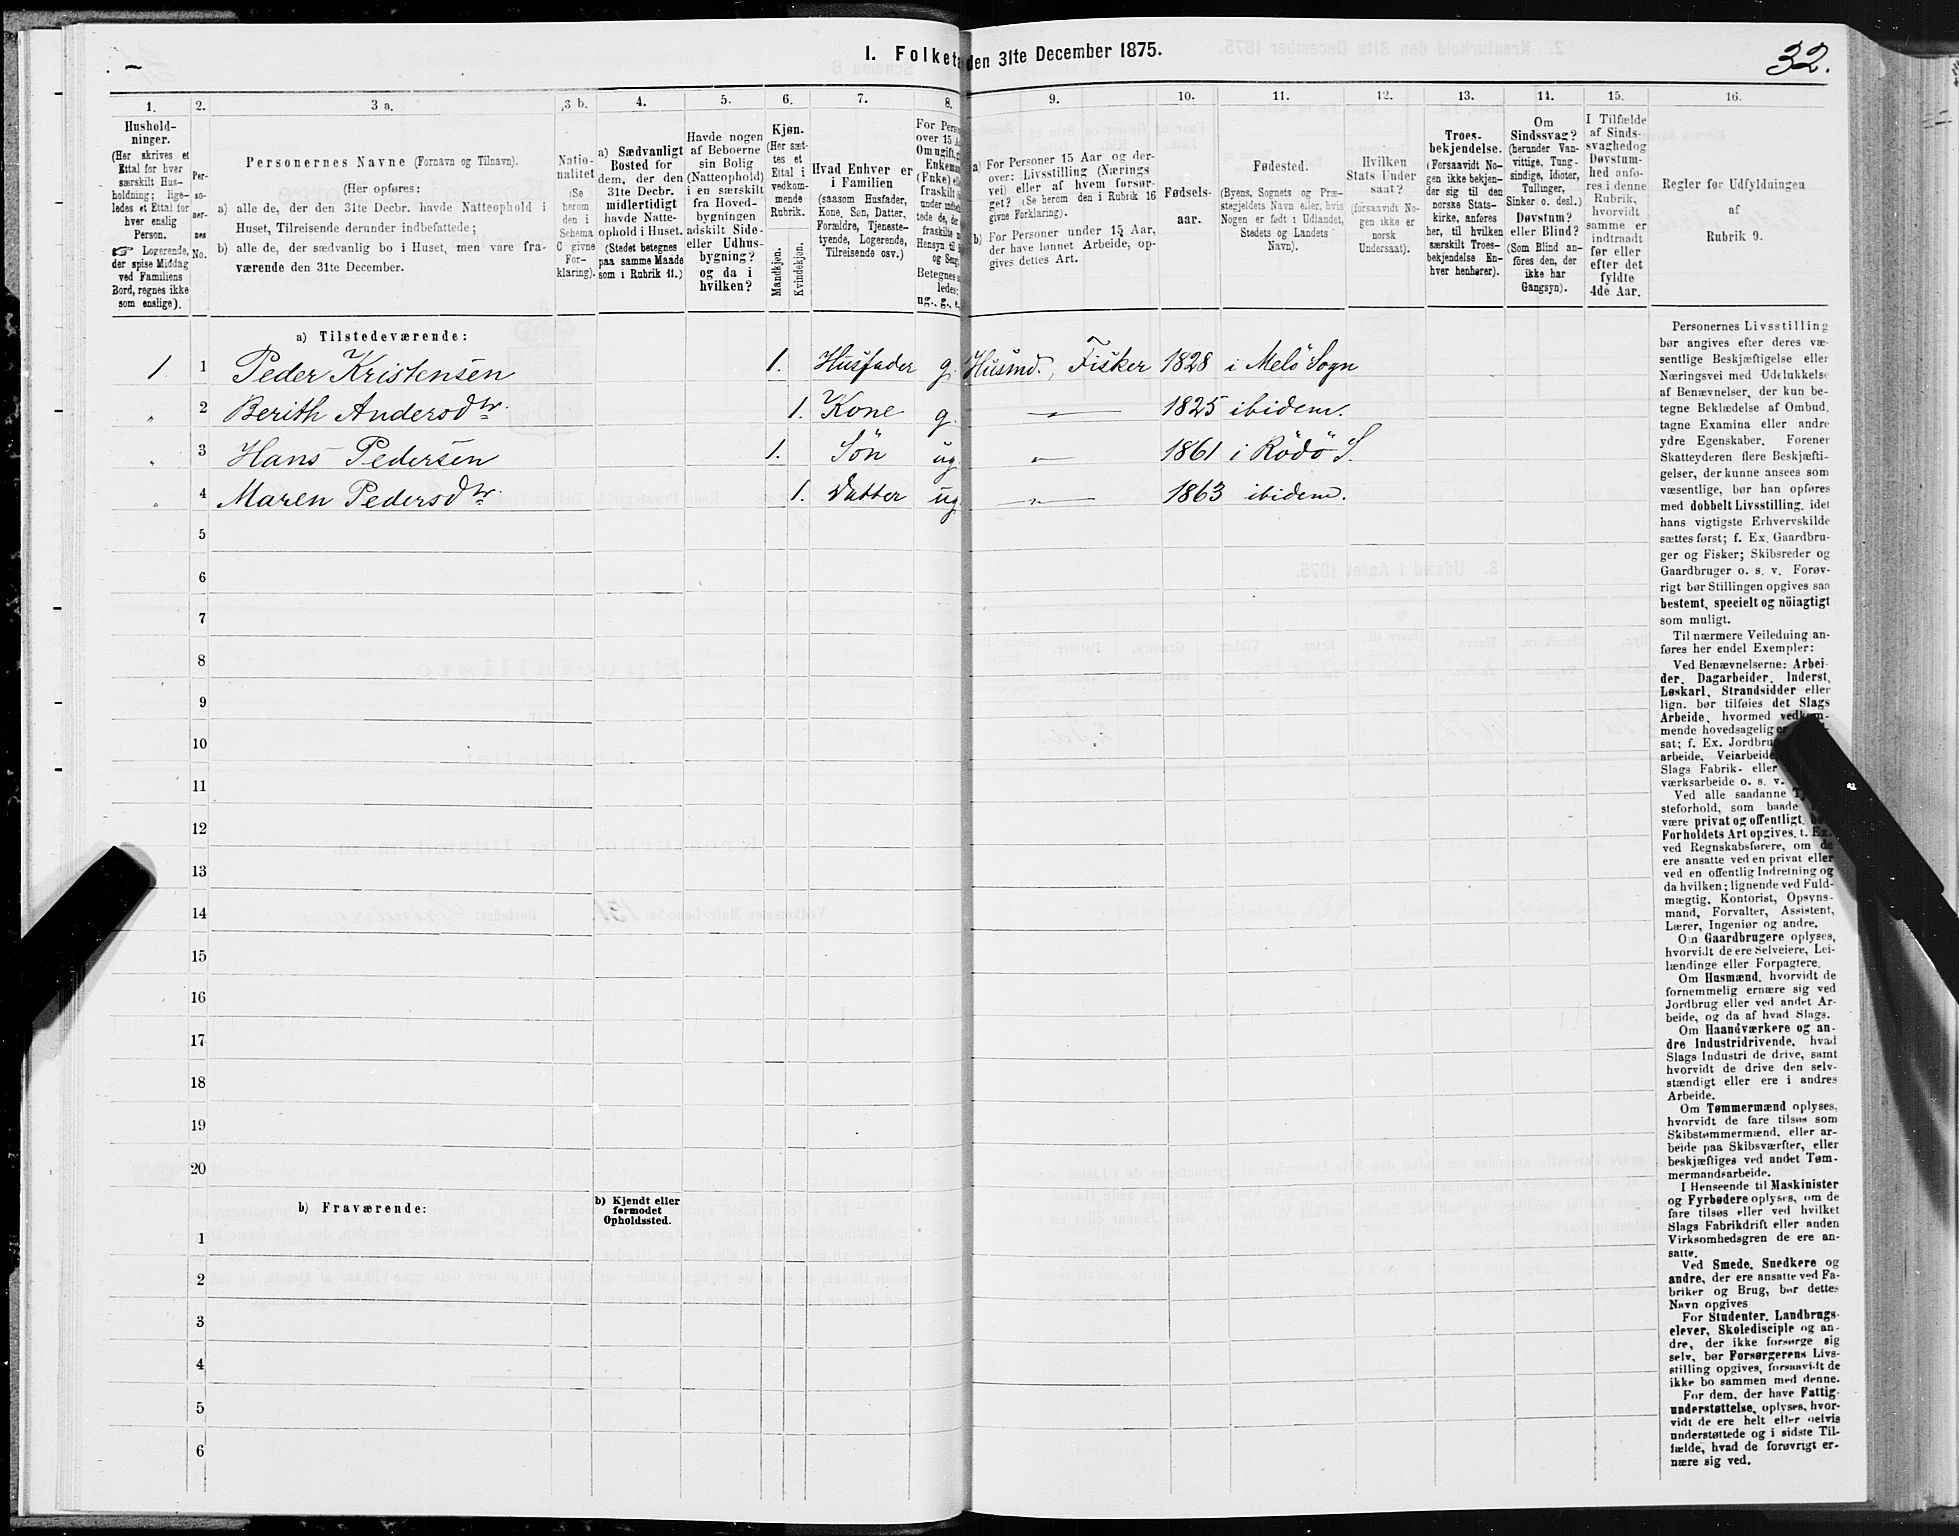 I. Folketæ
den 31te December 1875.
32.
1.
Hushold-
ninger.
(Her skrives et
Ettal for hver
særskilt Hus-
holdning; lige-
ledes et Ettal for
hver enslig
Person.
☞ Logerende,
der spise Middag
ved Familiens
Bord, regnes ikke
som enslige).
2.
Per-
so-
ner-
nes
No.
3 a.
Personernes Navne (Fornavn og Tilnavn).
(Her opføres:
a) alle de, der den 31te Decbr. havde Natteophold i
Huset, Tilreisende derunder indbefattede;
b) alle de, der sædvanlig bo i Huset, men vare fra-
værende den 31te December.
3 b.
Natio-
nalitet
(Se
herom
den i
Schema
C givne
For-
klaring).
4.
a) Sædvanligt
Bosted for
dem, der den
31te Decbr.
midlertidigt
havde Natte-
ophold i Huset.
(Stedet betegnes
paa samme Maade
som i Rubrik 11.)
5.
Havde nogen
af Beboerne
sin Bolig
(Natteophold)
i en særskilt
fra Hoved-
bygningen
adskilt Side-
eller Udhus-
bygning?
og da i
hvilken?
6.
Kjøn.
(Her sæt-
tes et
Ettal i
vedkom-
mende
Rubrik.
Mandkjøn.
Kvindekjøn.
7.
Hvad Enhver er
i Familien
(saasom Husfader,
Kone, Søn, Datter,
Forældre, Tjeneste-
tyende, Logerende,
Tilreisende osv.)
8.
For Perso
over 15 A
Om ugift, g
Enkeman
(Enke) el
fraskilt
under indbe
tede de, de
fraskilte
Hensyn til
og Seng
Betegnes s
ledes:
ug., g., e.
9.
a) For Personer 15 Aar og der-
over: Livsstilling (Nærings
vei) eller af hvem forsør-
get? (Se herom den i Rubrik 16
givne Forklaring).
b) For Personer under 15 Aar,
der have lønnet Arbeide, op-
gives dettes Art.
10.
Fødsels-
aar.
11.
Fødested.
(Byens, Sognets og Præ-
stegjeldets Navn eller, hvis
Nogen er født i Udlandet,
Stedets og Landets
Navn).
12.
Hvilken
Stats Under
saat?
(forsaavidt No-
gen ikke er
norsk
Undersaat).
13.
Troes-
bekjendelse.
(Forsaavidt No-
gen ikke bekjen-
der sig til den
norske Stats-
kirke, anføres
her, til hvilken
særskilt Troes-
bekjendelse En-
hver henhører).
14.
Om
Sindssvag?
(herunder Van-
vittige, Tung-
sindige, Idioter,
Tullinger,
Sinker o. desl.)
Døvstum?
eller Blind?
(Som Blind an-
føres den, der
ikke har
Gangsyn).
15.
I Tilfælde
af Sinds-
svaghedog
Døvstum-
hed anfø-
res i denne
Rubrik,
hvorvidt
samme er
indtraadt
før eller
efter det
fyldte
4de Aar.
16.
Regler for Udfyldningen
af
Rubrik 9.
a) Tilstedeværende:
1 1 Peder Kristensen 1. Husfader g. Husmd., Fisker 1828 i Melö Sogn
„ 2 Berith Andersdtr. 1. Kone g. — „ — 1825 ibidem.
„ 3 Hans Pedersen 1. Sön ug. „ 1861 i Rödö S.
„ 4 Maren Pedersdtr. 1. Datter ug — „ — 1863 ibidem.
5
6
7
8
9
10
11
12
13
14
15
16
17
18
19
20
b) Fraværende:
b) Kjendt eller
formodet
Opholdssted.
1
2
3
4
5
6
Personernes Livsstilling
bør angives efter deres væ-
sentlige Beskjæftigelse eller
Næringsvei med Udelukkelse
af Benævnelser, der kun be-
tegne Beklædelse af Ombud,
tagne Examina eller andre
ydre Egenskaber. Forener
Skatteyderen flere Beskjæfti-
gelser, der kunne ansees som
væsentlige, bør han opføres
med dobbelt Livsstilling, idet
hans vigtigste Erhvervskilde
sættes først; f. Ex. Gaardbru-
ger og Fisker; Skibsreder og
Gaardbruger o. s. v. Forøv-
rigt bør Stillingen opgives saa
bestemt, specielt og nöiagtigt
som muligt.
Til nærmere Veiledning an-
føres her endel Exempler:
Ved Benævnelserne: Arbei-
der, Dagarbeider, Inderst,
Løskarl, Strandsidder eller
lign. bør tilføies det Slags
Arbeide, hvormed vedkom-
mende hovedsagelig er
sat; f. Ex. Jordbru
arbeide, Veiarbeide
Slags Fabrik- eller
værksarbeide o. s. v.
Ved alle saadanne
steforhold, som baade
være privat og offentligt,
Forholdets Art opgives, t. Ex.
ved Regnskabsførere, om de
ere ansatte ved en privat eller
ved en offentlig Indretning og
da hvilken; lignende ved Fuld-
mægtig, Kontorist, Opsyns-
mand, Forvalter, Assistent,
Lærer, Ingeniør og andre.
Om Gaardbrugere oplyses,
hvorvidt de ere Selveiere, Lei-
lændinge eller Forpagtere.
Om Husmænd, hvorvidt de
fornemmelig ernære sig ved
Jordbrug eller ved andet Ar-
beide, og da af hvad Slags.
Om Haandværkere og an-
dre Industridrivende, hvad
Slags Industri de drive, samt
hvorvidt de drive den selv-
stændigt eller ere i andres
Arbeide.
Om Tømmermænd oplyses,
hvorvidt de fare tilsøs som
Skibstømmermænd, eller ar-
beide paa Skibsværfter, eller
beskjæftiges ved andet Tøm-
mermandsarbeide.
I Henseende til Maskinister
og Fyrbødere oplyses, om de
fare tilsøs eller ved hvilket
Slags Fabrikdrift eller anden
Virksomhedsgren de ere an-
satte.
Ved Smede, Snedkere og
andre, der ere ansatte ved Fa-
briker og Brug, bør dettes
Navn opgives
For Studenter, Landbrugs-
elever, Skoledisciple og an-
dre, der ikke forsørge sig
selv, bør Forsørgerens Livs-
stilling opgives, forsaavidt de
ikke bo sammen med denne.
For dem, der have Fattig-
understøttelse, oplyses, hvor-
vidt de ere helt eller delvis
understøttede og i sidste Til-
fælde, hvad de forøvrigt er-
nære sig ved.